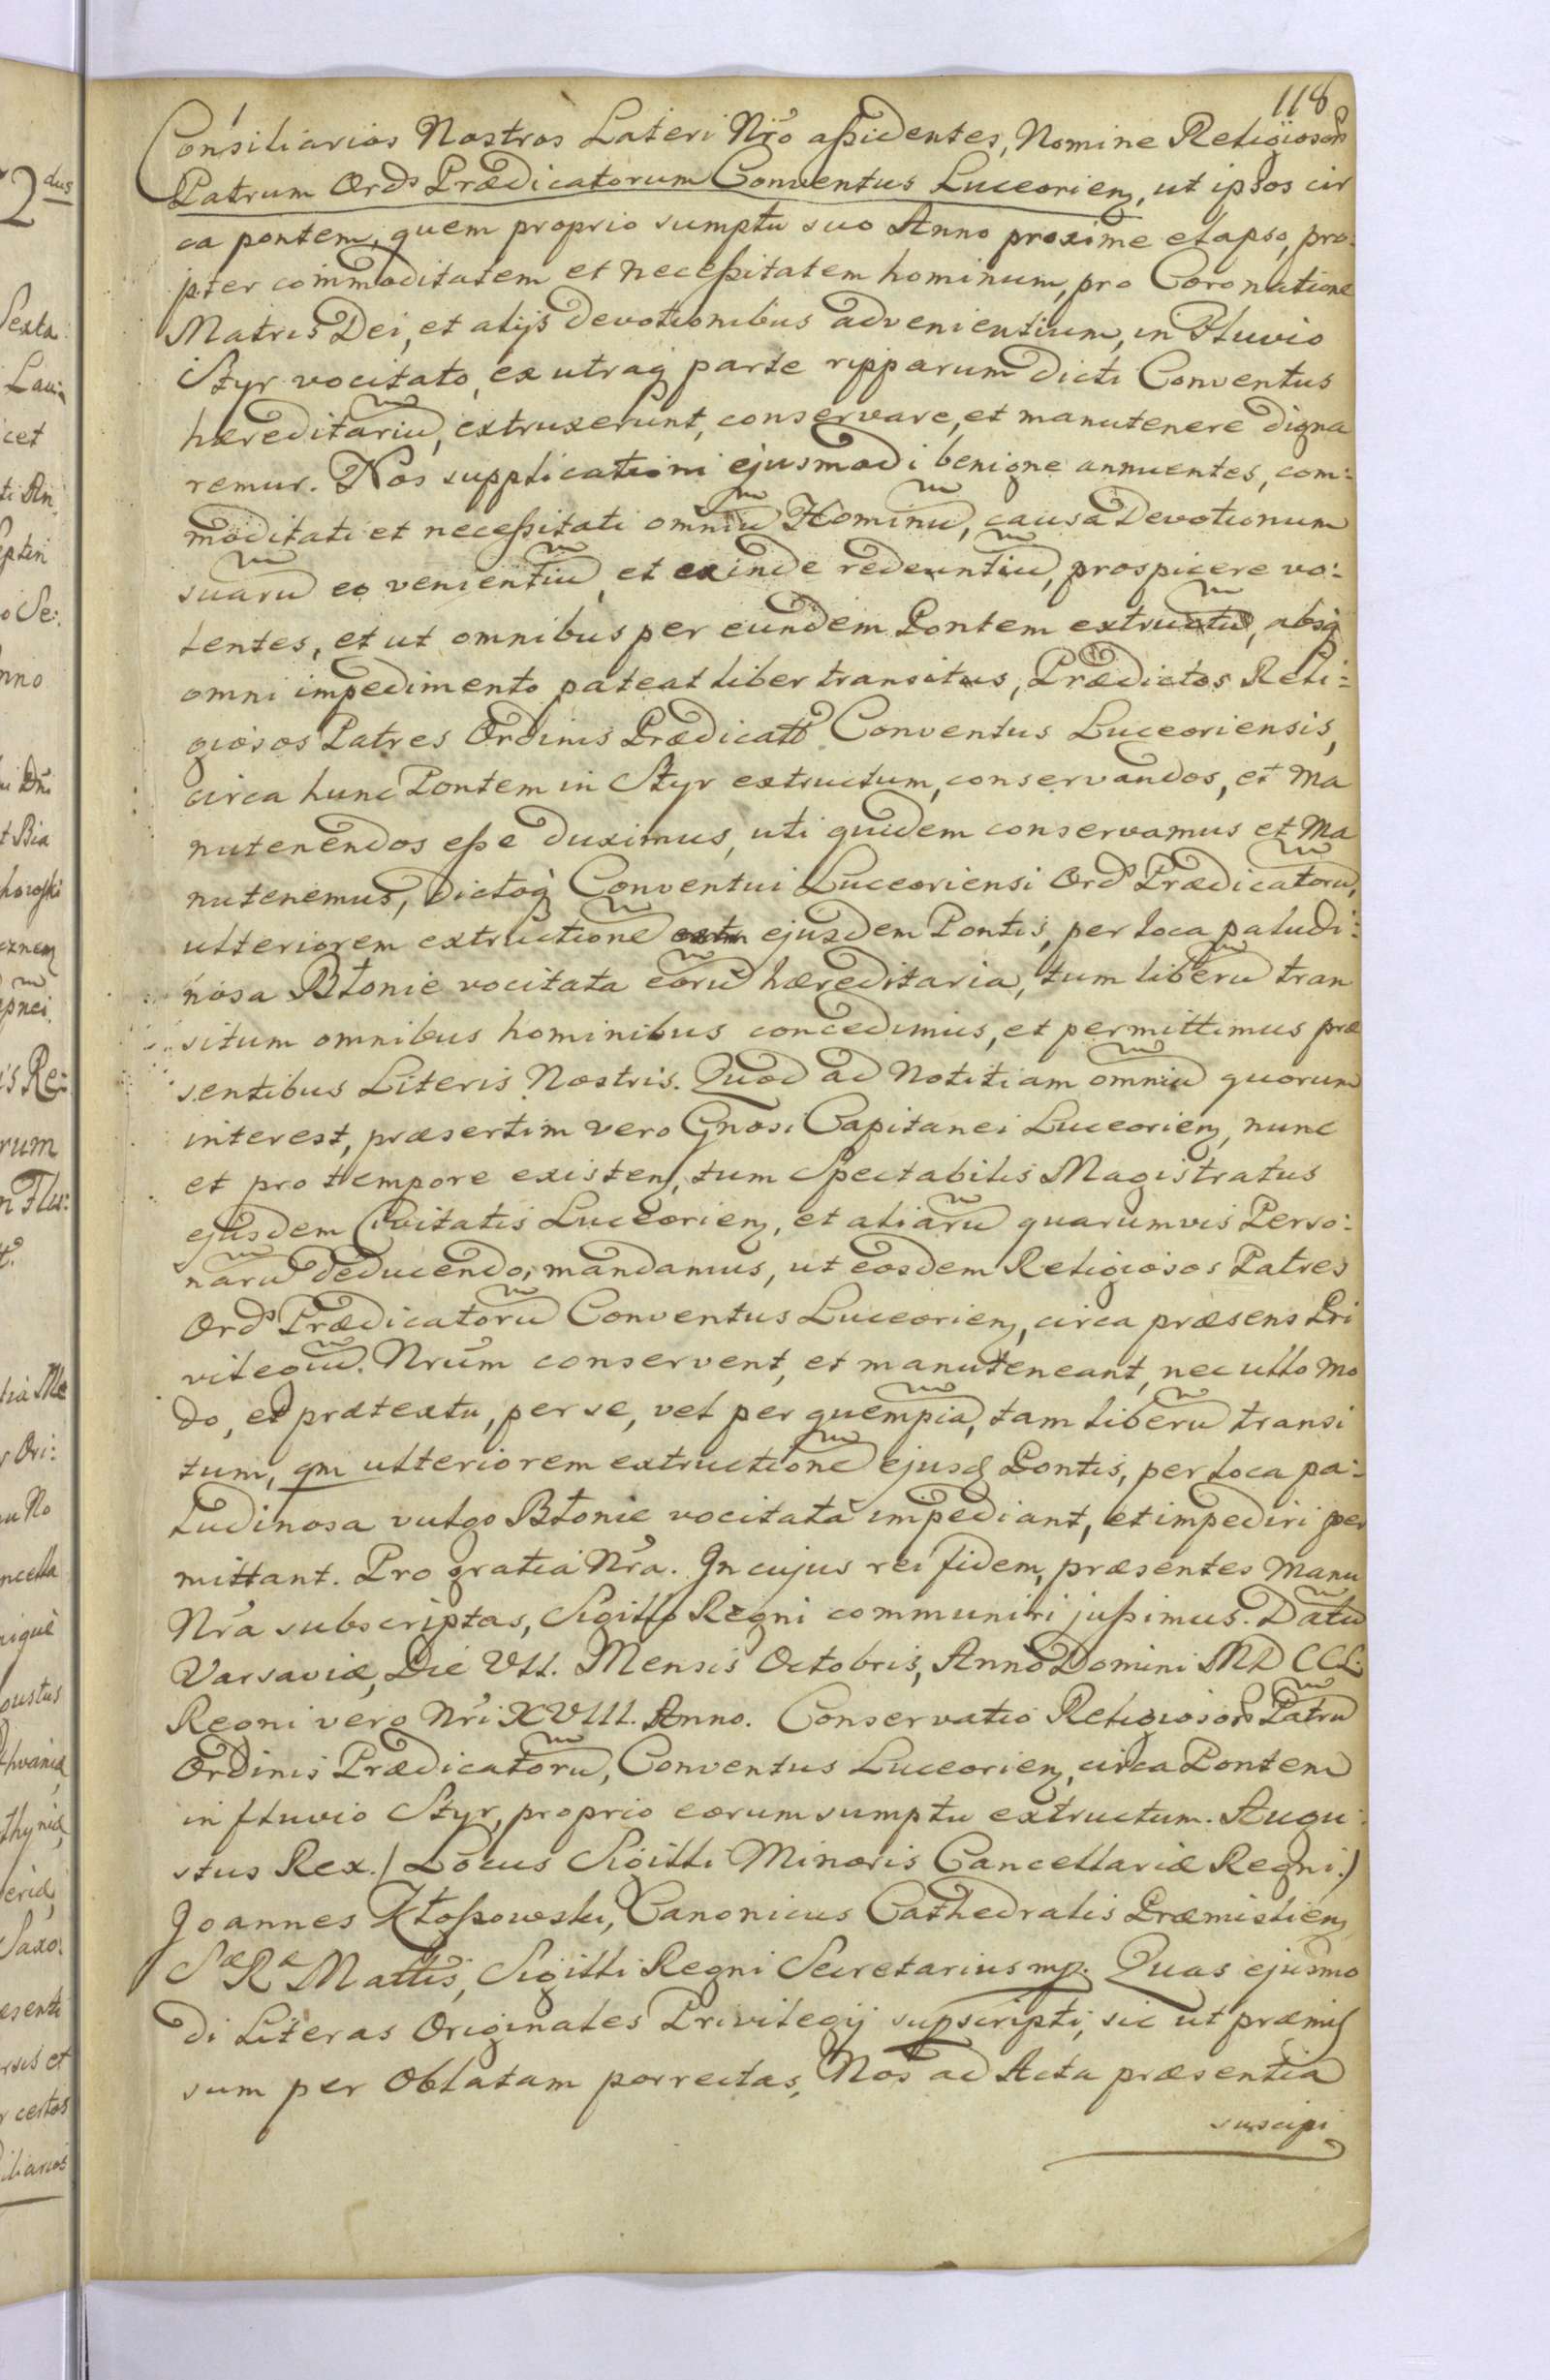 118
Consiliarios Nostros Lateri Nrõ aßidentes, Nomine Religiosorũ
Patrum Ordˢ Prædicatorum Conventus Luceorien, ut ipsos cir
ca pontem, quem proprio sumptu suo Anno proxime elapso, pro:
pter commoditatem et neceßitatem hominum, pro Coronatione
Matris Dei, et alijs devotionibus advenientium, in Fluvio
Styr vocitato, ex utraq parte ripparum dicti Conventus
hæreditariũ, extruxerunt, conservare, et manutenere digna
remur. Nos supplicationi ejusmodi benigne annuentes, com:
moditati et neceßitati omniũ Hominũ, causa Devotionum
suarũ eo venientiũ, et exinde redeuntiũ, prospicere vo:
lentes, et ut omnibus per eundem Pontem extructũ, absq
omni impedimento pateat liber transitus, Prædictos Reli:
giosos Patres Ordinis Prædicatt Conventus Luceoriensis,
circa hunc Pontem in Styr extructum, conservandos, et Ma
nutenendos eße duximus, uti quidem conservamus et Ma
nutenemus, dictoq Conventui Luceoriensi Ordˢ Prædicatorũ,
ulteriorem extructionẽ ejusdem Pontis, per loca paludi:
nosa Błonie vocitata eorũ hæreditaria, tum liberũ tran
situm omnibus hominibus concedimus, et permittimus præ
sentibus Literis Nostris. Quod ad Notitiam omniũ quorum
interest, præsertim vero Gnosi Capitanei Luceorien, nunc
et pro tempore existen, tum Spectabilis Magistratus
ejusdem Civitatis Luceorien, et aliarũ quarumvis Perso:
narũ deducendo, mandamus, ut eosdem Religiosos Patres
Ordˢ Prædicatorũ Conventus Luceorien, circa præsens Pri
vilegiũ Nrum conservent, et manuteneant, nec ullo mo
do, et prætextu, per se, vel per quempiã, tam liberũ transi
tum, qm ulteriorem extructionẽ ejusd Pontis, per loca pa:
ludinosa vulgo Błonie vocitata impediant, et impediri per
mittant. Pro gratia Nra. In cujus rei fidem, præsentes Manu
Nra subscriptas, Sigillo Regni communiri jußimus. Datũ
Varsaviæ, Die VII. Mensis Octobris, Anno Domini MDCCL.
Regni vero Nri XVIII. Anno. Conservatio Religiosorũ Patrũ
Ordinis Prædicatorũ, Conventus Luceorien, circa Pontem
in fluvio Styr, proprio eorum sumptu extructum. Augu:
stus Rex. / Locus Sigilli Minoris Cancellariæ Regni./
Joannes Kłoßowski, Canonicus Cathedralis Præmislien
Sæ Rᵃ Mattis, Sigilli Regni Secretarius mp. Quas ejusmo
di Literas Originales Privilegij suprscripti, sic ut præmis
sum per Oblatam porrectas, Nos ad Acta præsentia
suscipi
2dus
Sexta
cet
nno
t Bia
is Re:
rum
ncella
Saxo:
rsis et
r certos
iliarios